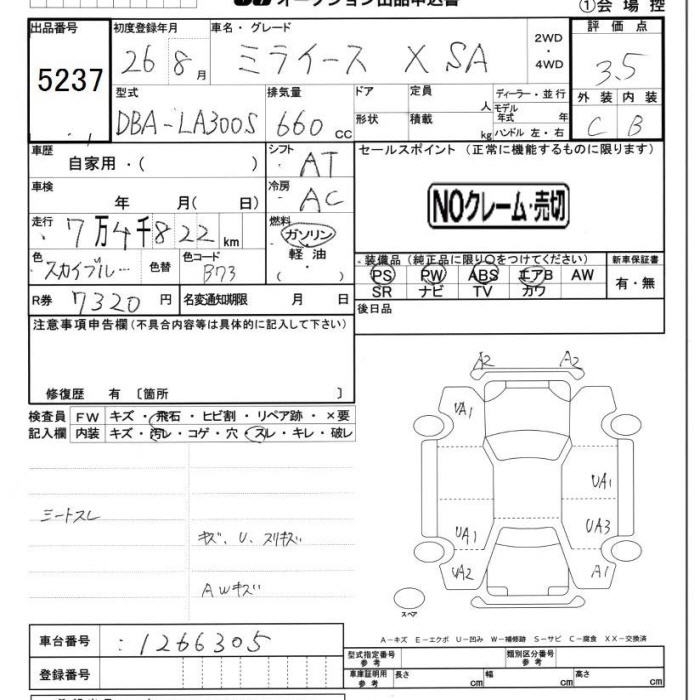 オークション出品申込書
①会場控
出品番号 初度登録年月 車名・グレード 評価点
5237 26 8月 ミライース X SA 2WD ・ 4WD 3.5
型式 排気量 ドア 定員 人 ディーラー・並行 外装 内装
DBA-LA300S 660 cc 形状 積載 kg モデル年式 年 ハンドル 左・右 C B
車歴 自家用・( ) シフト AT セールスポイント (正常に機能するものに限ります)
車検 年 月( 日) 冷房 AC
NOクレーム・売切
走行 7万4千822km 燃料 ガソリン
軽油
・
( )
色 スカイブルー 色替 色コード B73
・装備品(純正品に限り○をつけてください) 新車保証書
PS PW ABS エアB AW 有・無
SR ナビ TV カワ
R券 7320円 名変通知期限 月 日 後日品
注意事項申告欄(不具合内容等は具体的に記入して下さい)
修復歴 有 〔箇所 〕
検査員 FW キズ・飛石・ヒビ割・リペア跡・×要
記入欄 内装 キズ・汚レ・コゲ・穴・スレ・キレ・破レ
A2 A2
UA1
UA1
UA1 UA3
UA2 A1
スペア
ミートスレ
キズ、U、スリキズ
AWキズ
A-キズ E-エクボ U-凹み W-補修跡 S-サビ C-腐食 XX-交換済
車台番号 :1266305
型式指定番号 参考 類別区分番号 参考
登録番号
車庫証明用 参考 長さ cm 幅 cm 高さ cm